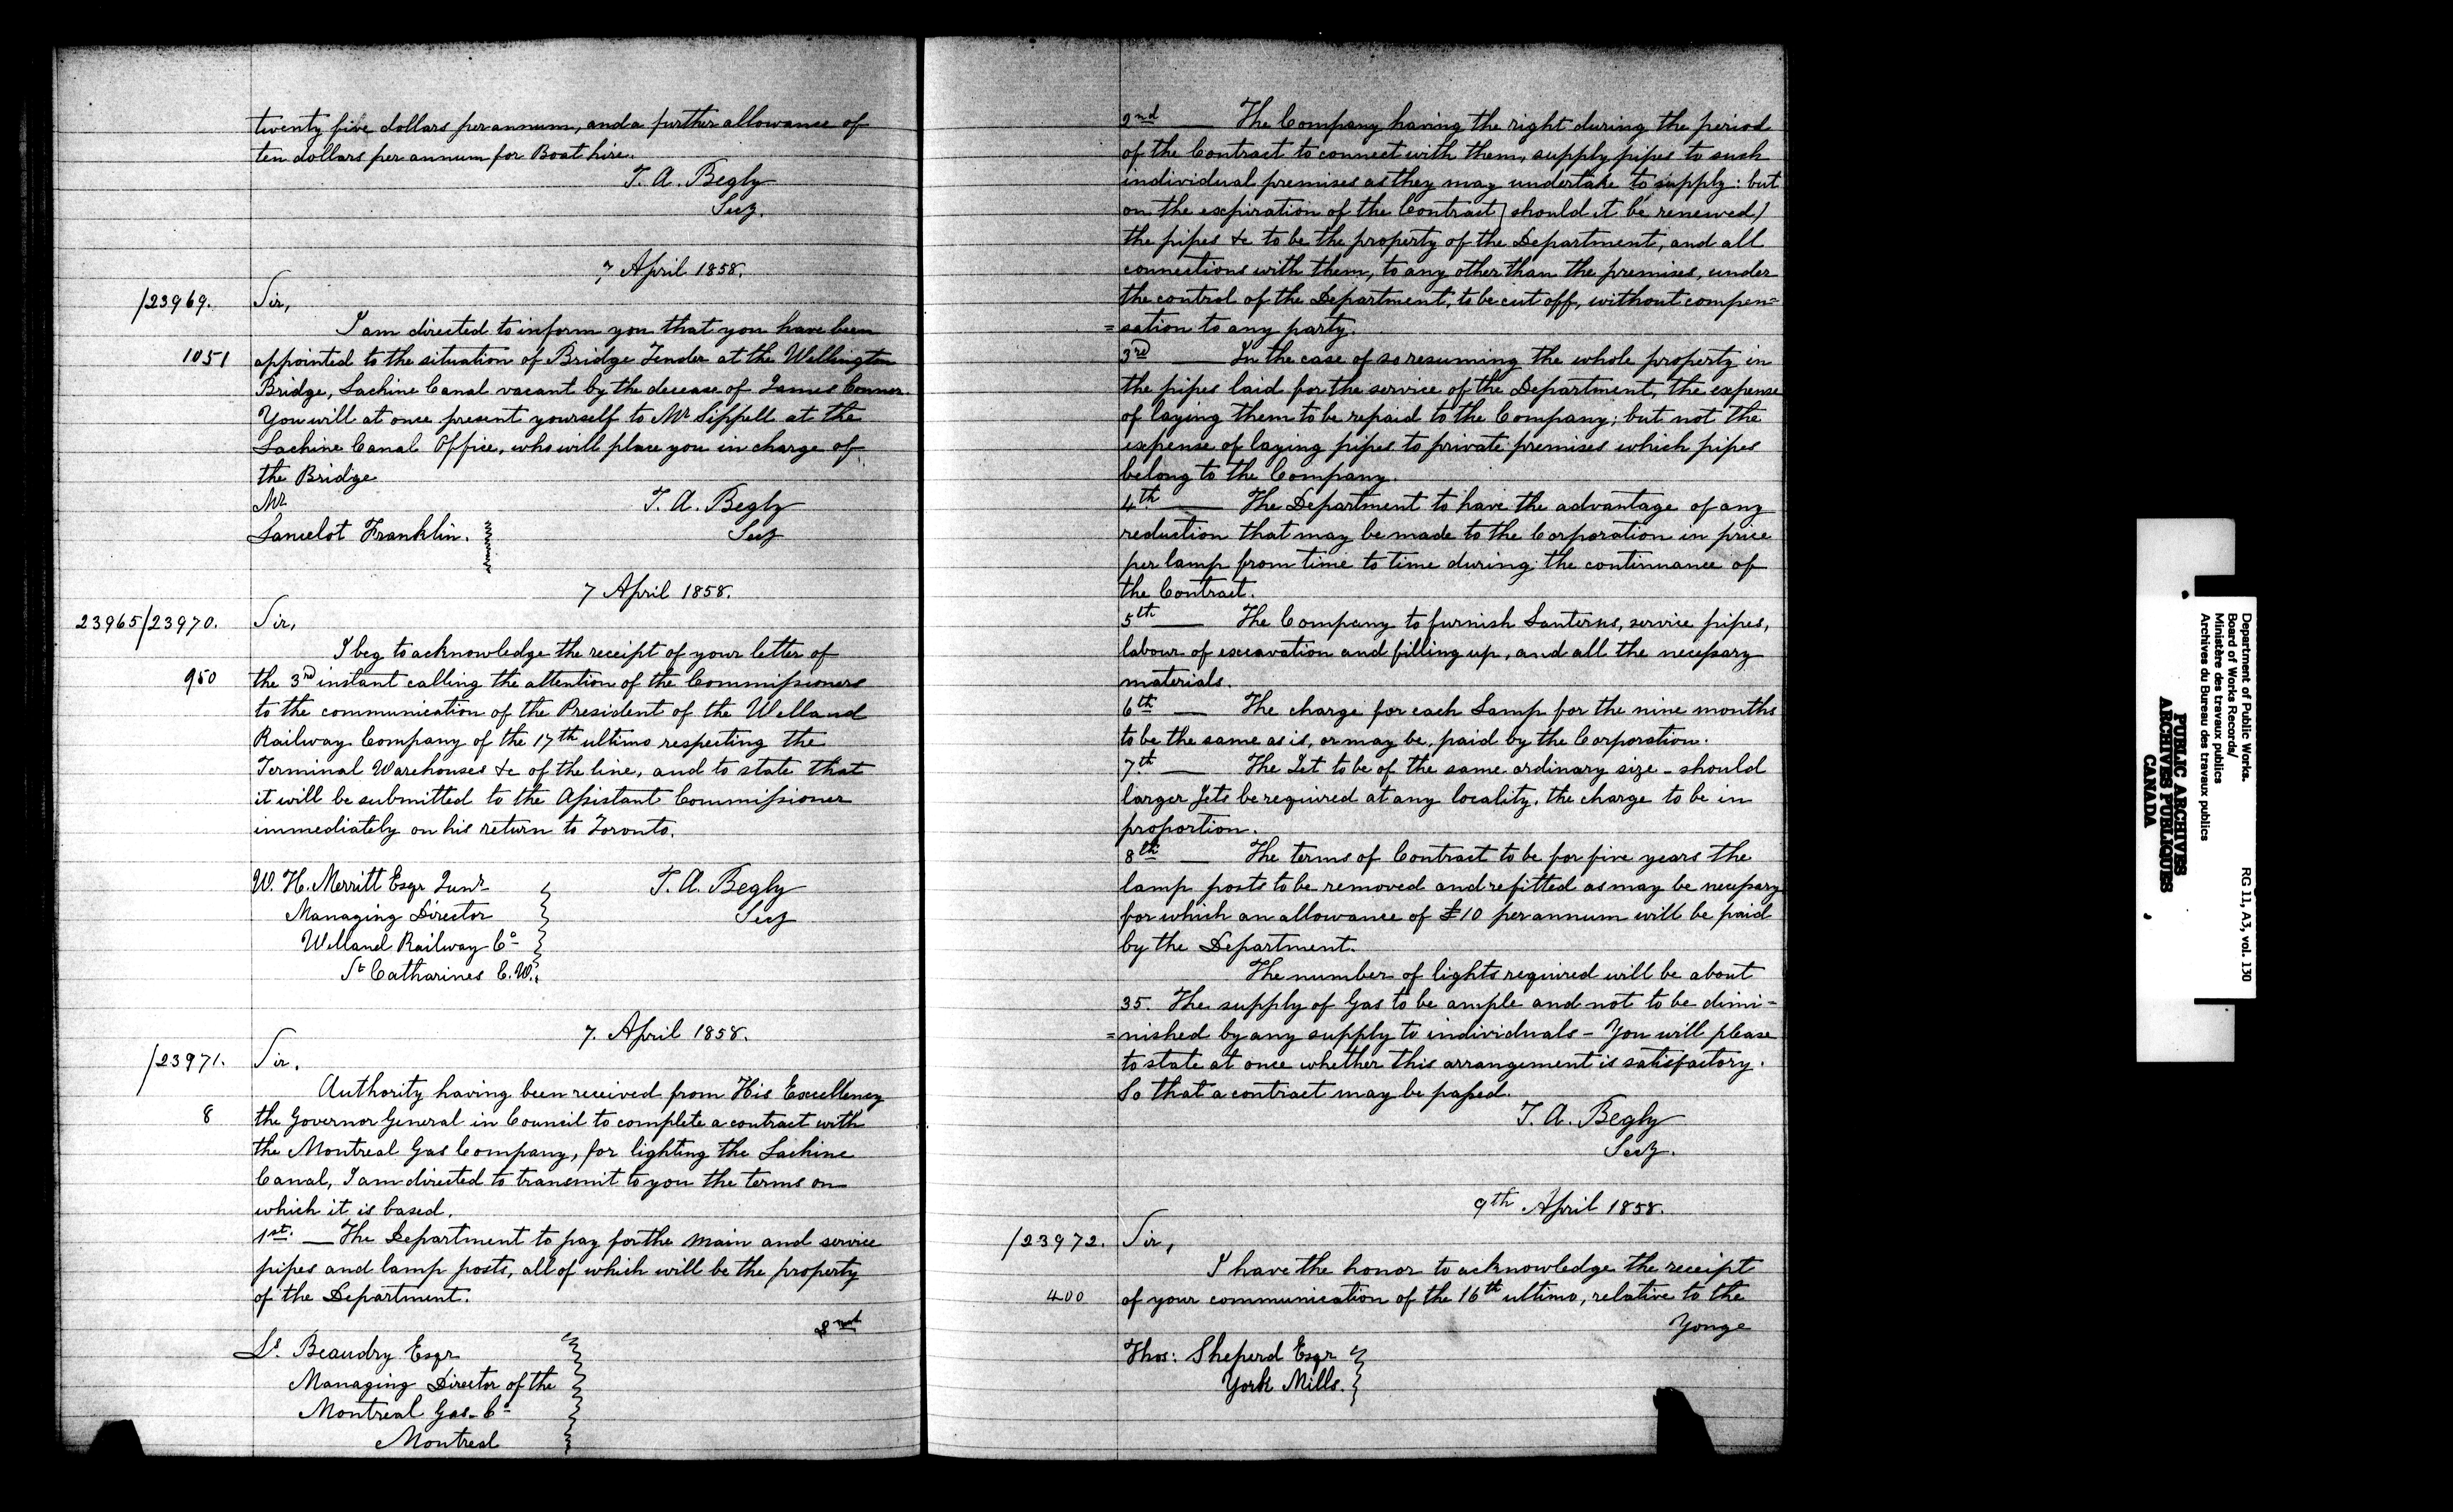 twenty five dollars per annum, and a further allowance of
ten dollars per annum for Boat hire.
T. A. Begly
Secy.
7 April 1858.
/23969. Sir,
I am directed to inform you that you have been
1051 appointed to the situation of Bridge Tender at the Wellington
Bridge, Lachine Canal vacant by the decease of James Connor.
You will at once present yourself to Mr Sippell at the
Lachine Canal Office, who will place you in charge of
the Bridge
Mr T. A. Begly
Lancelot Franklin. Secy
7 April 1858.
23965/23970. Sir,
I beg to acknowledge the receipt of your letter of
950 the 3rd instant calling the attention of the Commissioners
to the communication of the President of the Welland
Railway Company of the 17th ultimo respecting the
Terminal Warehouses &c of the line, and to state that
it will be submitted to the Assistant Commissioner
immediately on his return to Toronto.
W. H. Merritt Esqr Junr T. A. Begly
Managing Director Secy
Welland Railway Co
St Catharines C.W.
7. April 1858.
/23971. Sir.
Authority having been received from His Excellency
8 the Governor General in Council to complete a contract with
the Montreal Gas Company, for lighting the Lachine
Canal, I am directed to transmit to you the terms on
which it is based.
1st. — The Department to pay for the main and service
pipes and lamp posts, all of which will be the property
of the Department.
2nd
Ls. Beaudry Esqr
Managing Director of the
Montreal Gas Co
Montreal
2nd — The Company having the right during the period
of the Contract to connect with them, supply pipes to such
individual premises as they may undertake to supply: but
on the expiration of the Contract) should it be renewed)
the pipes &c to be the property of the Department, and all
connections with them, to any other than the premises, under
the control of the Department, to be cut off, without compen=
=sation to any party.
3rd — In the case of so resuming the whole property in
the pipes laid for the service of the Department, the expense
of laying them to be repaid to the Company; but not the
expense of laying pipes to private premises which pipes
belong to the Company.
4th — The Department to have the advantage of any
reduction that may be made to the Corporation in price
per lamp from time to time during the continuance of
the Contract.
5th — The Company to furnish Lanterns, service pipes,
labour of excavation and filling up, and all the necessary
materials.
6th — The charge for each Lamp for the nine months
to be the same as is, or may be, paid by the Corporation.
7th — The Jet to be of the same ordinary size - should
larger Jets be required at any locality, the charge to be in
proportion.
8th — The terms of Contract to be for five years the
lamp posts to be removed and refitted as may be necessary
for which an allowance of £10 per annum will be paid
by the Department.
The number of lights required will be about
35. The supply of Gas to be ample and not to be dimi=
=nished by any supply to individuals - You will please
to state at once whether this arrangement is satisfactory.
So that a contract may be passed.
T. A. Begly
Secy.
9th April 1858.
/23972. Sir,
I have the honor to acknowledge the receipt
400 of your communication of the 16th ultimo, relative to the
Yonge
Thos: Sheperd Esqr
York Mills.
Department of Public Works.
Board of Works Records/
Ministère des travaux publics
Archives du Bureau des travaux publics
RG 11, A3, vol. 130
PUBLIC ARCHIVES
ARCHIVES PUBLIQUES
CANADA